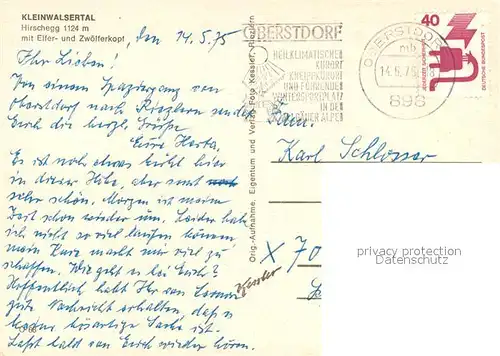 KLEINWALSERTAL
Hirschegg 1124 m
mit Elfer- und Zwölferkopf
, den 14.5.75
Ihr Lieben!
Von einem Spaziergang von
Oberstdorf nach Riezlern sendet
Euch die herzl. Grüße
Eure Herta.
Es ist noch etwas kühl hier
in dieser Höhe, aber sonst
sehr schön. Morgen ist meine
Zeit schon wieder um. Leider habe
ich nicht so viel laufen können
mein Kurz macht mir viel zu
schaffen. Wie geht es bei Euch?
Hoffentlich habt Ihr von
gute Nachricht erhalten, daß es
keine bösartige Sache ist.
Laßt bald von Euch wieder hören.
Orig.-Aufnahme, Eigentum und Verlag Foto Kessler, Riezlern
OBERSTDORF
HEILKLIMATISCHER
KURORT
KNEIPPKURORT
UND FÜHRENDER
WINTERSPORTPLATZ
IN DEN
ALLGÄUER ALPEN
OBERSTDORF
mb
14.5.75
898
40
DEUTSCHE BUNDESPOST
Fam.
Karl Schlosser
x 70
Kessler
privacy protection
Datenschutz